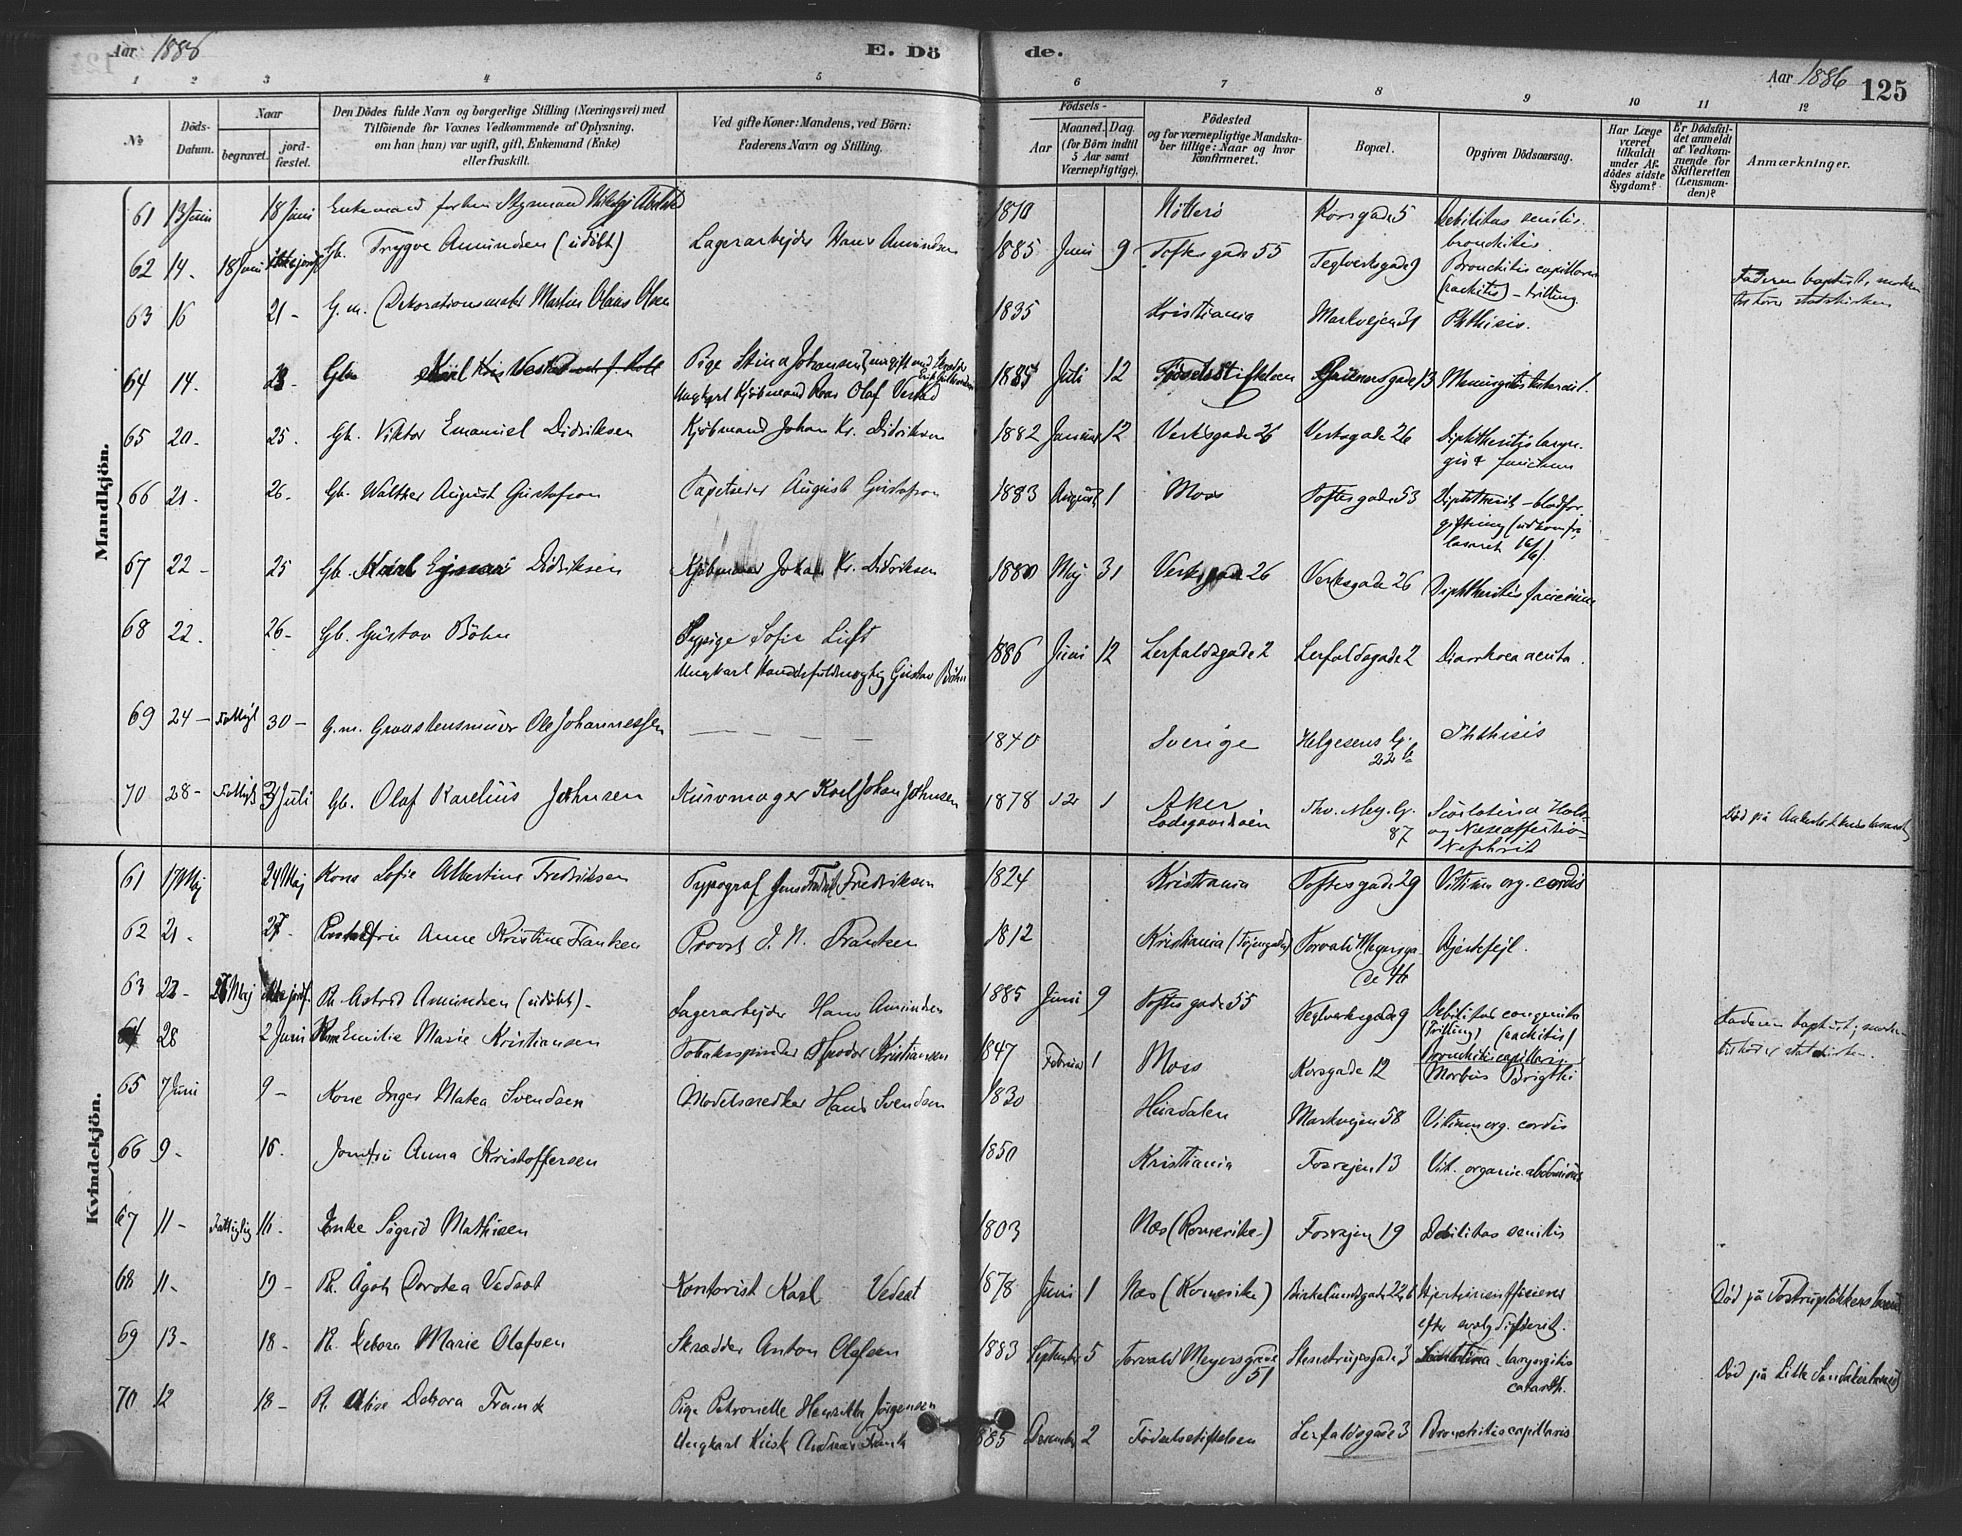 Aar 1886
E. Dö
de.
Aar 1886 125
1 2 3 4 5 6 7 8 9 10 11 12
№
Döds-Datum.
Naar
begravet.
jord-fæstet.
Den Dödes fulde Navn og borgerlige Stilling (Næringsvei) med
Tilföiende for Voxnes Vedkommende af Oplysning,
om han (hun) var ugift, gift, Enkemand (Enke)
eller fraskilt.
Ved gifte Koner: Mandens, ved Börn:
Faderens Navn og Stilling.
Födsels-
Aar
Maaned. Dag.
(for Börn indtil
5 Aar samt
Værnepligtige).
Födested
og for værnepligtige Mandska-
ber tillige: Naar og hvor
Konfirmeret.
Bopæl.
Opgiven Dödsaarsag.
Har Læge
været
tilkaldt
under Af-
dödes sidste
Sygdom?
Er Dödsfal-
det anmeldt
af Vedkom-
mende for
Skifteretten
(Lensman-
den)?
Anmærkninger.
Mandkjön.
61 13 Juni 18 Juni Enkemand forhen Styrmand 1810 Nötterö Korsgade 5 Debilitas senilis. bronchitis
62 14. 18 Juni Gb. Trygve Amundsen (udöbt) Lagerarbejder Hans Amundsen 1885 Juni 9 Toftesgade 55 Teglverksgade 9 Bronchitis capillaris (rachitis) – trilling. Faderen baptist, moderen tilhörer statskirken
63 16 21 - G. m. Dekorationsmaler Martin Olaus Olsen 1835 Kristiania Markvejen 31 Phthisis.
64 14. 23 - Gb. Pige Stina Johansen Ungkarl Kjöbmand Olaf Vestad 1885 Juli 12 Födselsstiftelsen
65 20. 25. Gb. Viktor Emanuel Didriksen Kjöbmand Johan Kr. Didriksen 1882 Januar 12 Verksgade 26 Verksgade 26 Diphtheritis laryngis & faucium
66 21. 26. Gb. Walther August Gustafson Tapetserer August Gustafson 1883 August 1 Moss Toftesgade 53 Diphtherit – blodforgiftning
67 22 - 25 Gb. Karl Ejnar Didriksen Kjöbmand Johan Kr. Didriksen 1880 Maj 31 Verksgade 26 Verksgade 26 Diphtheritis faucium
68 22. 26 - Gb. Gustav Böhn Pige Sofie Lift Ungkarl Handelsfuldmægtig Gustav Böhn 1886 Juni 12 Lerfaldsgade 2 Lerfaldsgade 2 Diarrhoea acuta.
69 24 - Fattigl 30 - G. m. Graastensmurer Ole Johannessen 1840 Sverige Helgesens g. 22 b Phthisis
70 28 - Fattigl 3 Juli Gb. Olaf Karelius Johnsen Kurvmager Karl Johan Johnsen 1878 12 1 Aker Ladegaardsöen Thv. Mey. g. 87 Scarlatina Hals- og Næseaffection Nephrit Död på Ankerlökkens lasaret
Kvindekjön.
61 17 Maj 24 Maj Kone Sofie Albertine Fredriksen Typograf Jens Fredrik Fredriksen 1824 Kristiania Toftesgade 29 Vitium org. cordis
62 21. 27. Anne Kristine Frantzen Provst J. N. Frantzen 1812 Kristiania Torvald Meyersgade 44 Hjertefejl.
63 22 - Maj Pk. Astrid Amundsen (udöbt) - Lagerarbejder Hans Amundsen 1885 Juni 9 Toftesgade 55 Teglverksgade 9 Debilitas congenita (Trilling) (rachitis) Bronchitis capillaris Faderen baptist; moderen tilhörer statskirken.
64 28 2 Juni Kone Emilie Marie Kristiansen Tobakspinder Theodor Kristiansen 1847 Februar 1 Moss Korsgade 12 Morbus Brigthi
65 7 Juni 9 - Kone Inger Matea Svendsen Modelsnedker Hans Svendsen 1830 Hurdalen Markvejen 58 Vitium org. cordis
66 9 - 16. Jomfru Anna Kristoffersen 1850 Kristiania Fosvejen 13 Vit. organic. abdominis
67 11 - Fattiglig 16. Enke Sigrid Mathisen 1803 Næs (Romerike) Fosvejen 19 Debilitas senilis
68 11 - 19 - Pk. Ågot Dorotea Vedset Kontorist Karl Vedset 1878 Juni 1 Næs (Romerike) Birkelundsgade 22 b efter difterit. Död på Tostruplökkens lasaret
69 13 - 18 - Pk. Debora Marie Olafsen Skrædder Anton Olafsen 1883 September 5 Torvald Meyersgade 51 Stenstrupsgade 3 laryngitis catarrh. Död på Lille Sandaker lasaret
70 12 18 - Pk. Alise Debora Frank Pige Petronelle Henrikke Jörgensen Ungkarl Kusk Andreas Frank 1885 December 2 Födselsstiftelsen Lerfaldsgade 3 Bronchitis capillaris